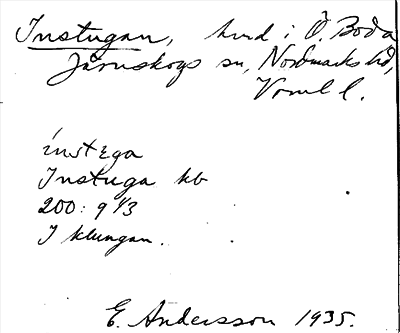 Instugan, hmd i Ö. Boda
Järnskogs sn, Nordmarks hd,
Vrml l.
instega
Instuga kb
200: 9 43
I klungan.
E. Andersson 1935.